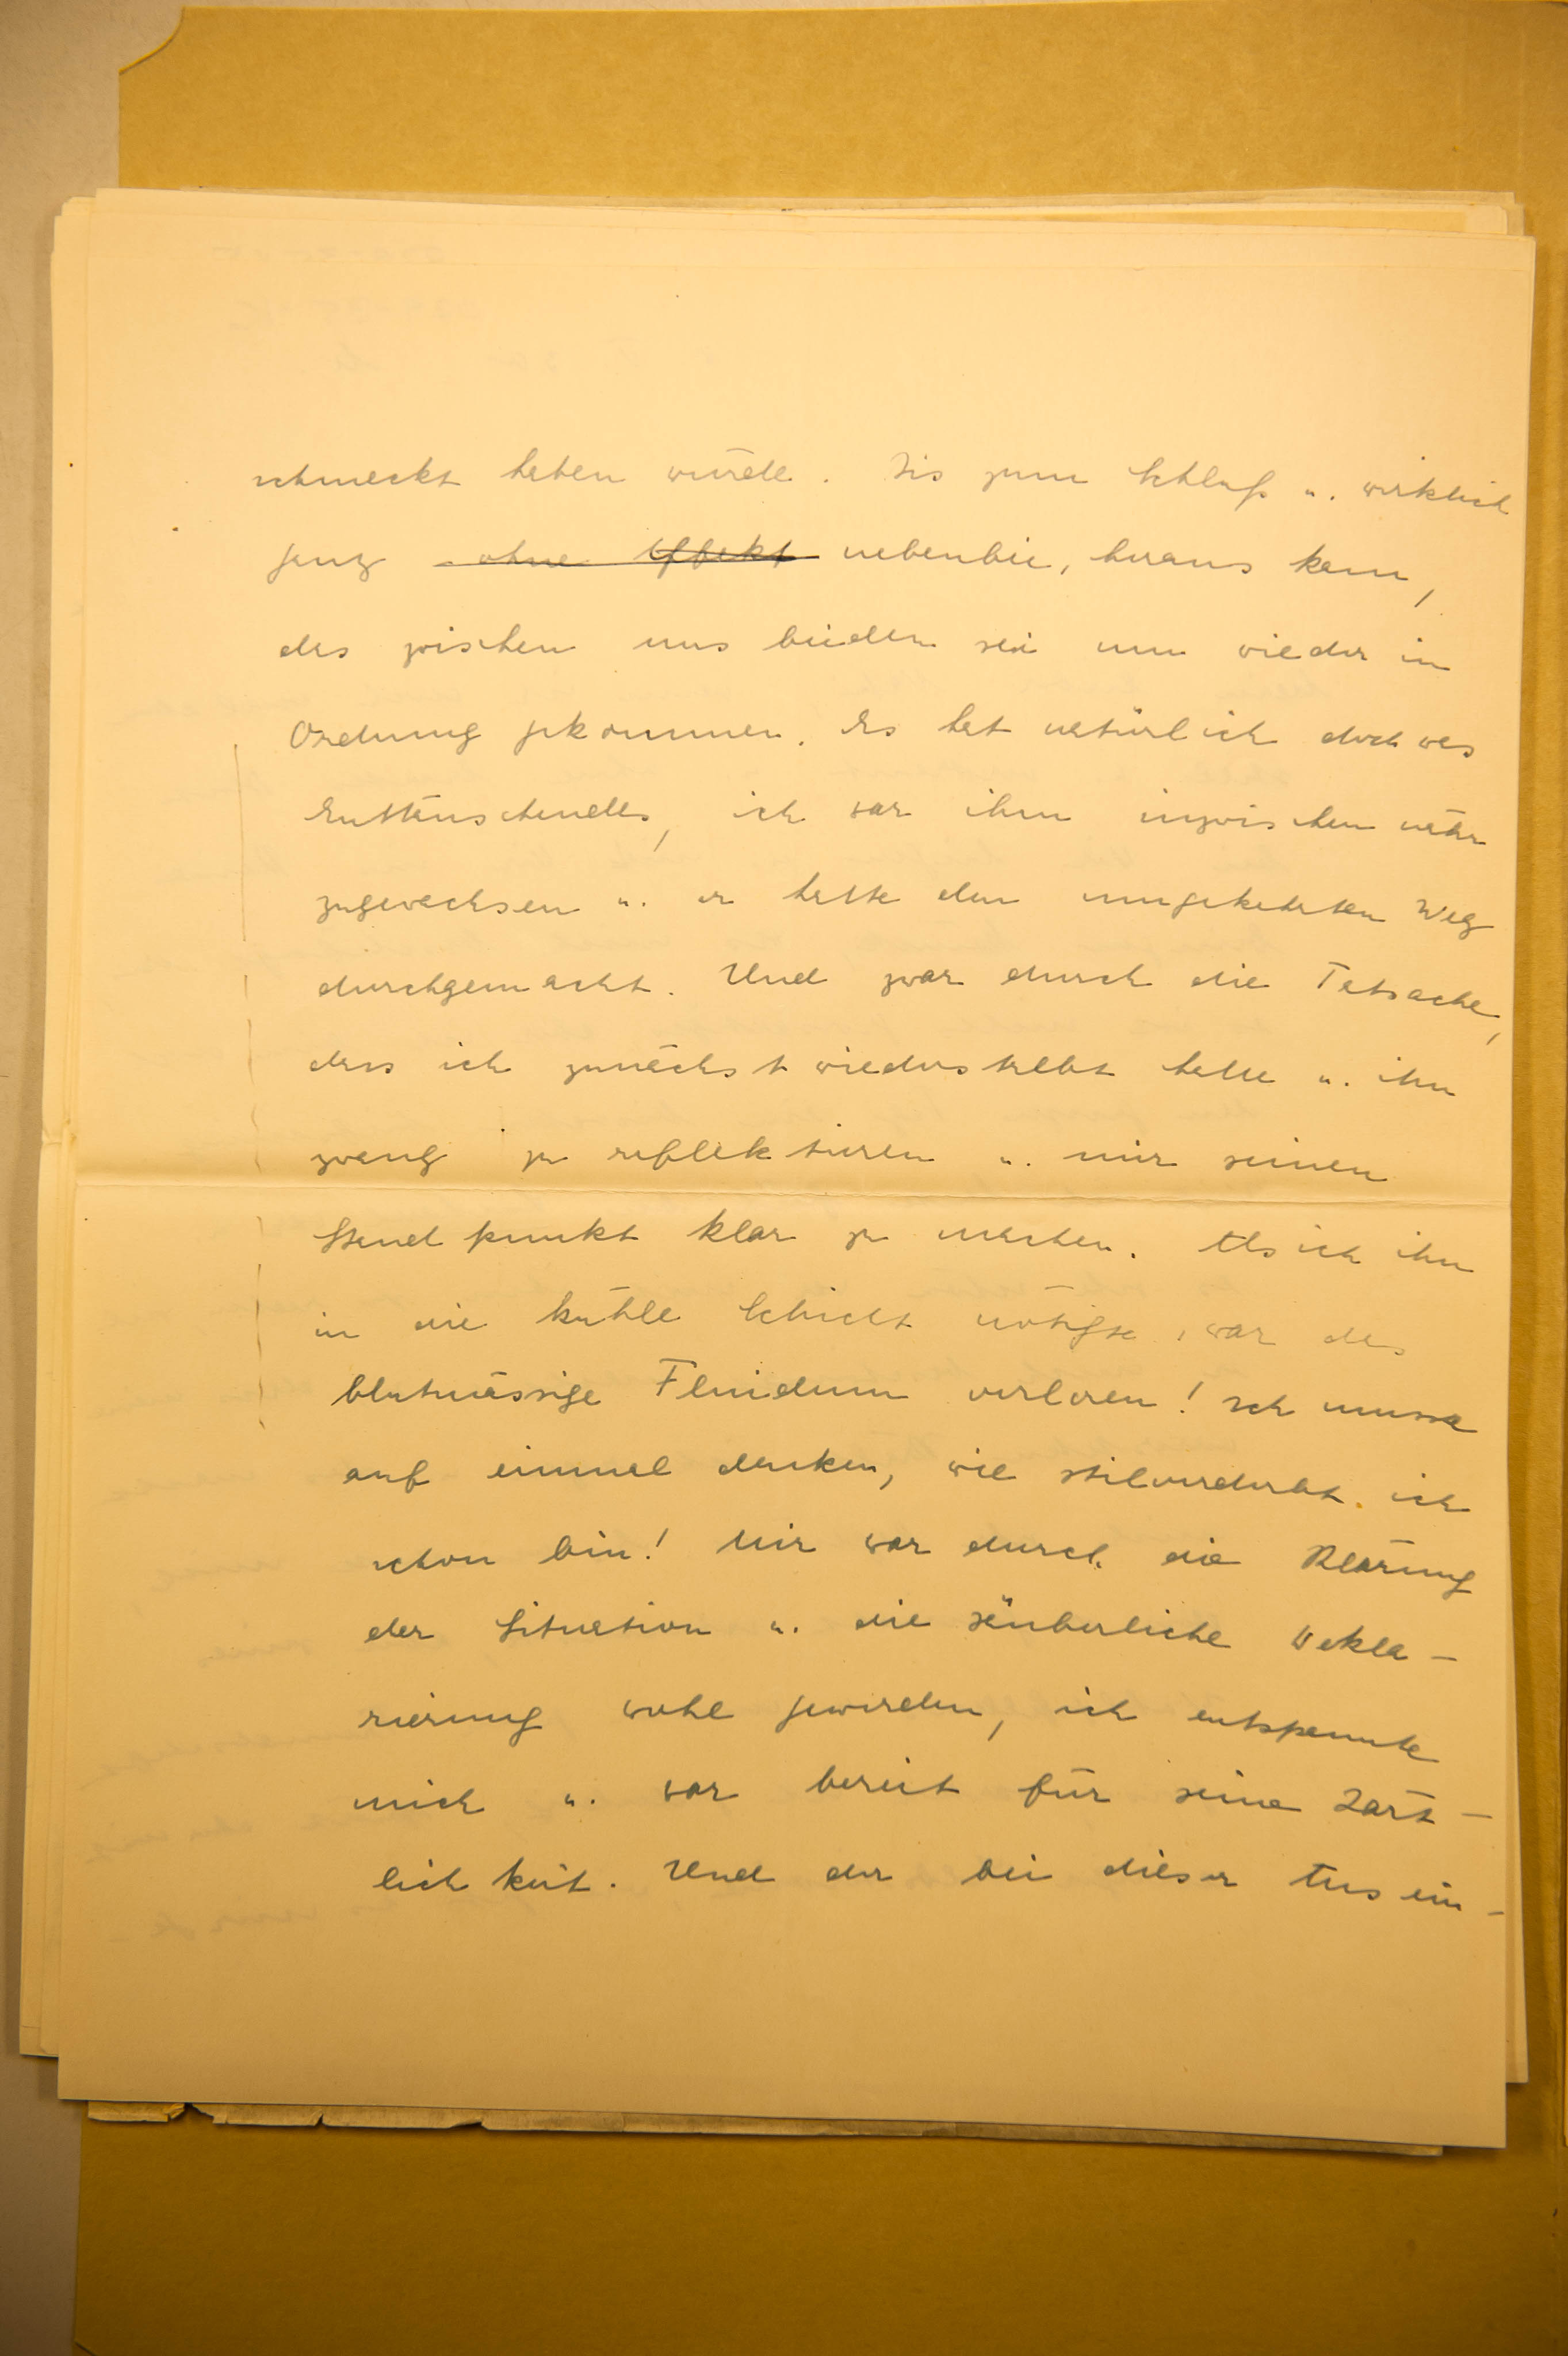 schmeckt haben würde. Bis zum Schluß u. wirklich
ganz ohne Effekt nebenbei, heraus kam,
das zwischen uns beiden sei nun wieder in
Ordnung gekommen. Es hat natürlich doch was
Enttäuschendes, ich war ihm inzwischen näher
zugewachsen u. er hatte den umgekehrten Weg
durchgemacht. Und zwar durch die Tatsache,
dass ich zunächst widerstrebt habe u. ihn
zwang zu reflektieren u. mir seinen
Standpunkt klar zu machen. Als ich ihn
in die kühle Schicht nötigte, war das
blutmässige Fluidum verloren! Ich musste
auf einmal denken, wie stilverderbt ich
schon bin! Mir war durch die Klärung
der Situation u. die säuberliche Dekla-
rierung wohl geworden, ich entspannte
mich u. war bereit für seine Zärt-
lichkeit. Und der bei dieser Aus ein-